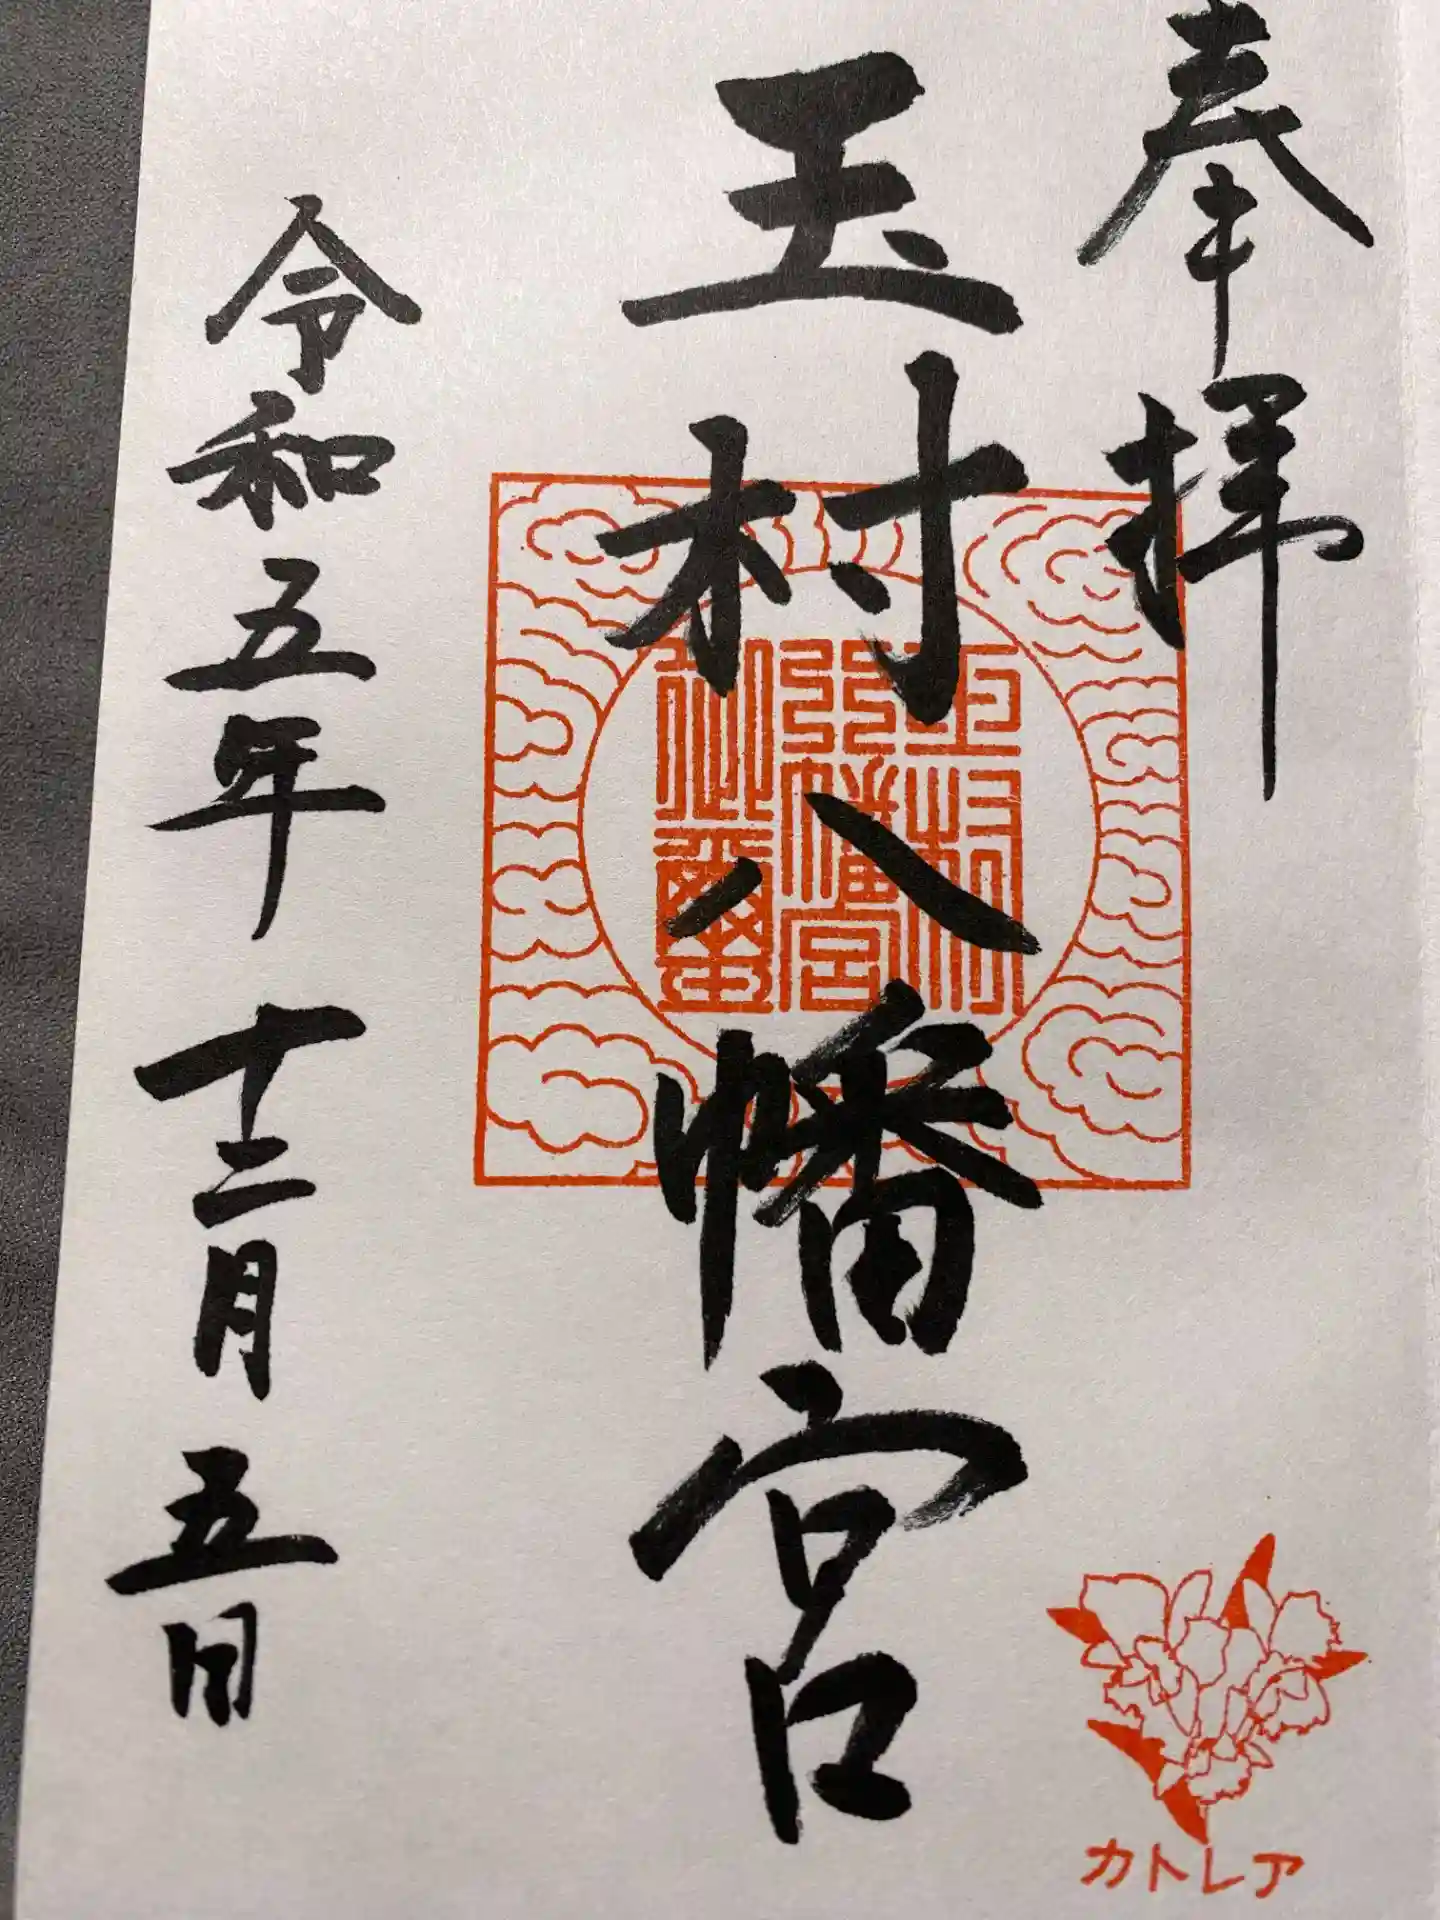 奉拝
玉村八幡宮
玉村
八幡宮
御璽
令和五年 十二月 五日
カトレア